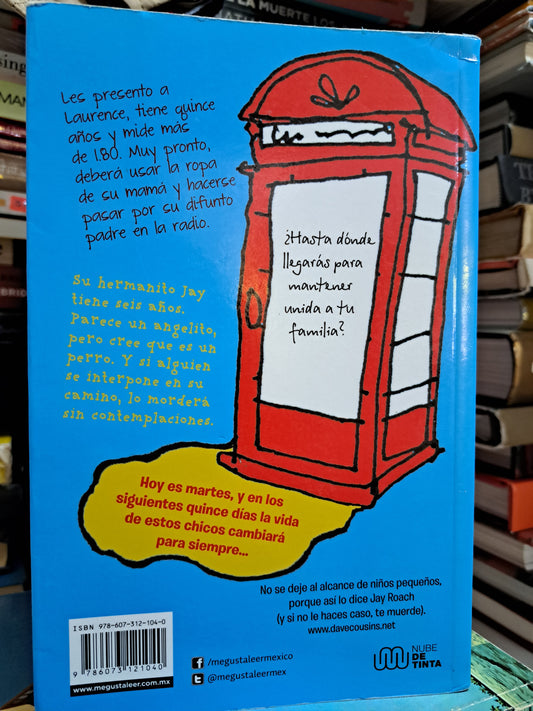 LA MUERTE LOS
Les presento a
Laurence, tiene quince
años y mide más
de 1.80. Muy pronto,
deberá usar la ropa
de su mamá y hacerse
pasar por su difunto
padre en la radio.
¿Hasta dónde
llegarás para
mantener
unida a tu
familia?
Su hermanito Jay
tiene seis años.
Parece un angelito,
pero cree que es un
perro. Y si alguien
se interpone en su
camino, lo morderá
sin contemplaciones.
Hoy es martes, y en los
siguientes quince días la vida
de estos chicos cambiará
para siempre...
No se deje al alcance de niños pequeños,
porque así lo dice Jay Roach
(y si no le haces caso, te muerde).
www.davecousins.net
ISBN 978-607-312-104-0
9 786073 121040
www.megustaleer.com.mx
f /megustaleermexico
t @megustaleermex
NUBE
DE TINTA